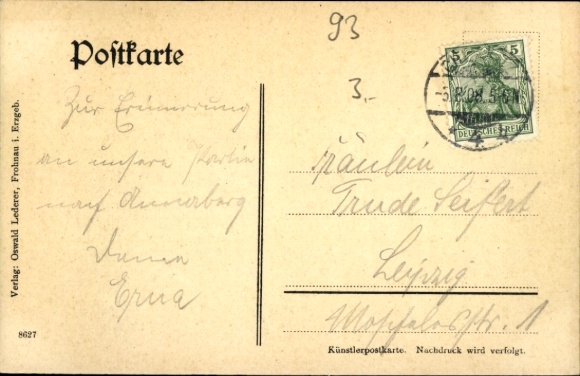 93
Postkarte
3.-
5
5
-5.8.08. 5-6N
DEUTSCHES REICH
Zur Erinnerung
an unsere Partie
nach Annaberg
Deine
Erna
Fräulein
Trude Seifert
Leipzig
Verlag: Oswald Lederer, Frohnau i. Erzgeb.
8627
Künstlerpostkarte. Nachdruck wird verfolgt.